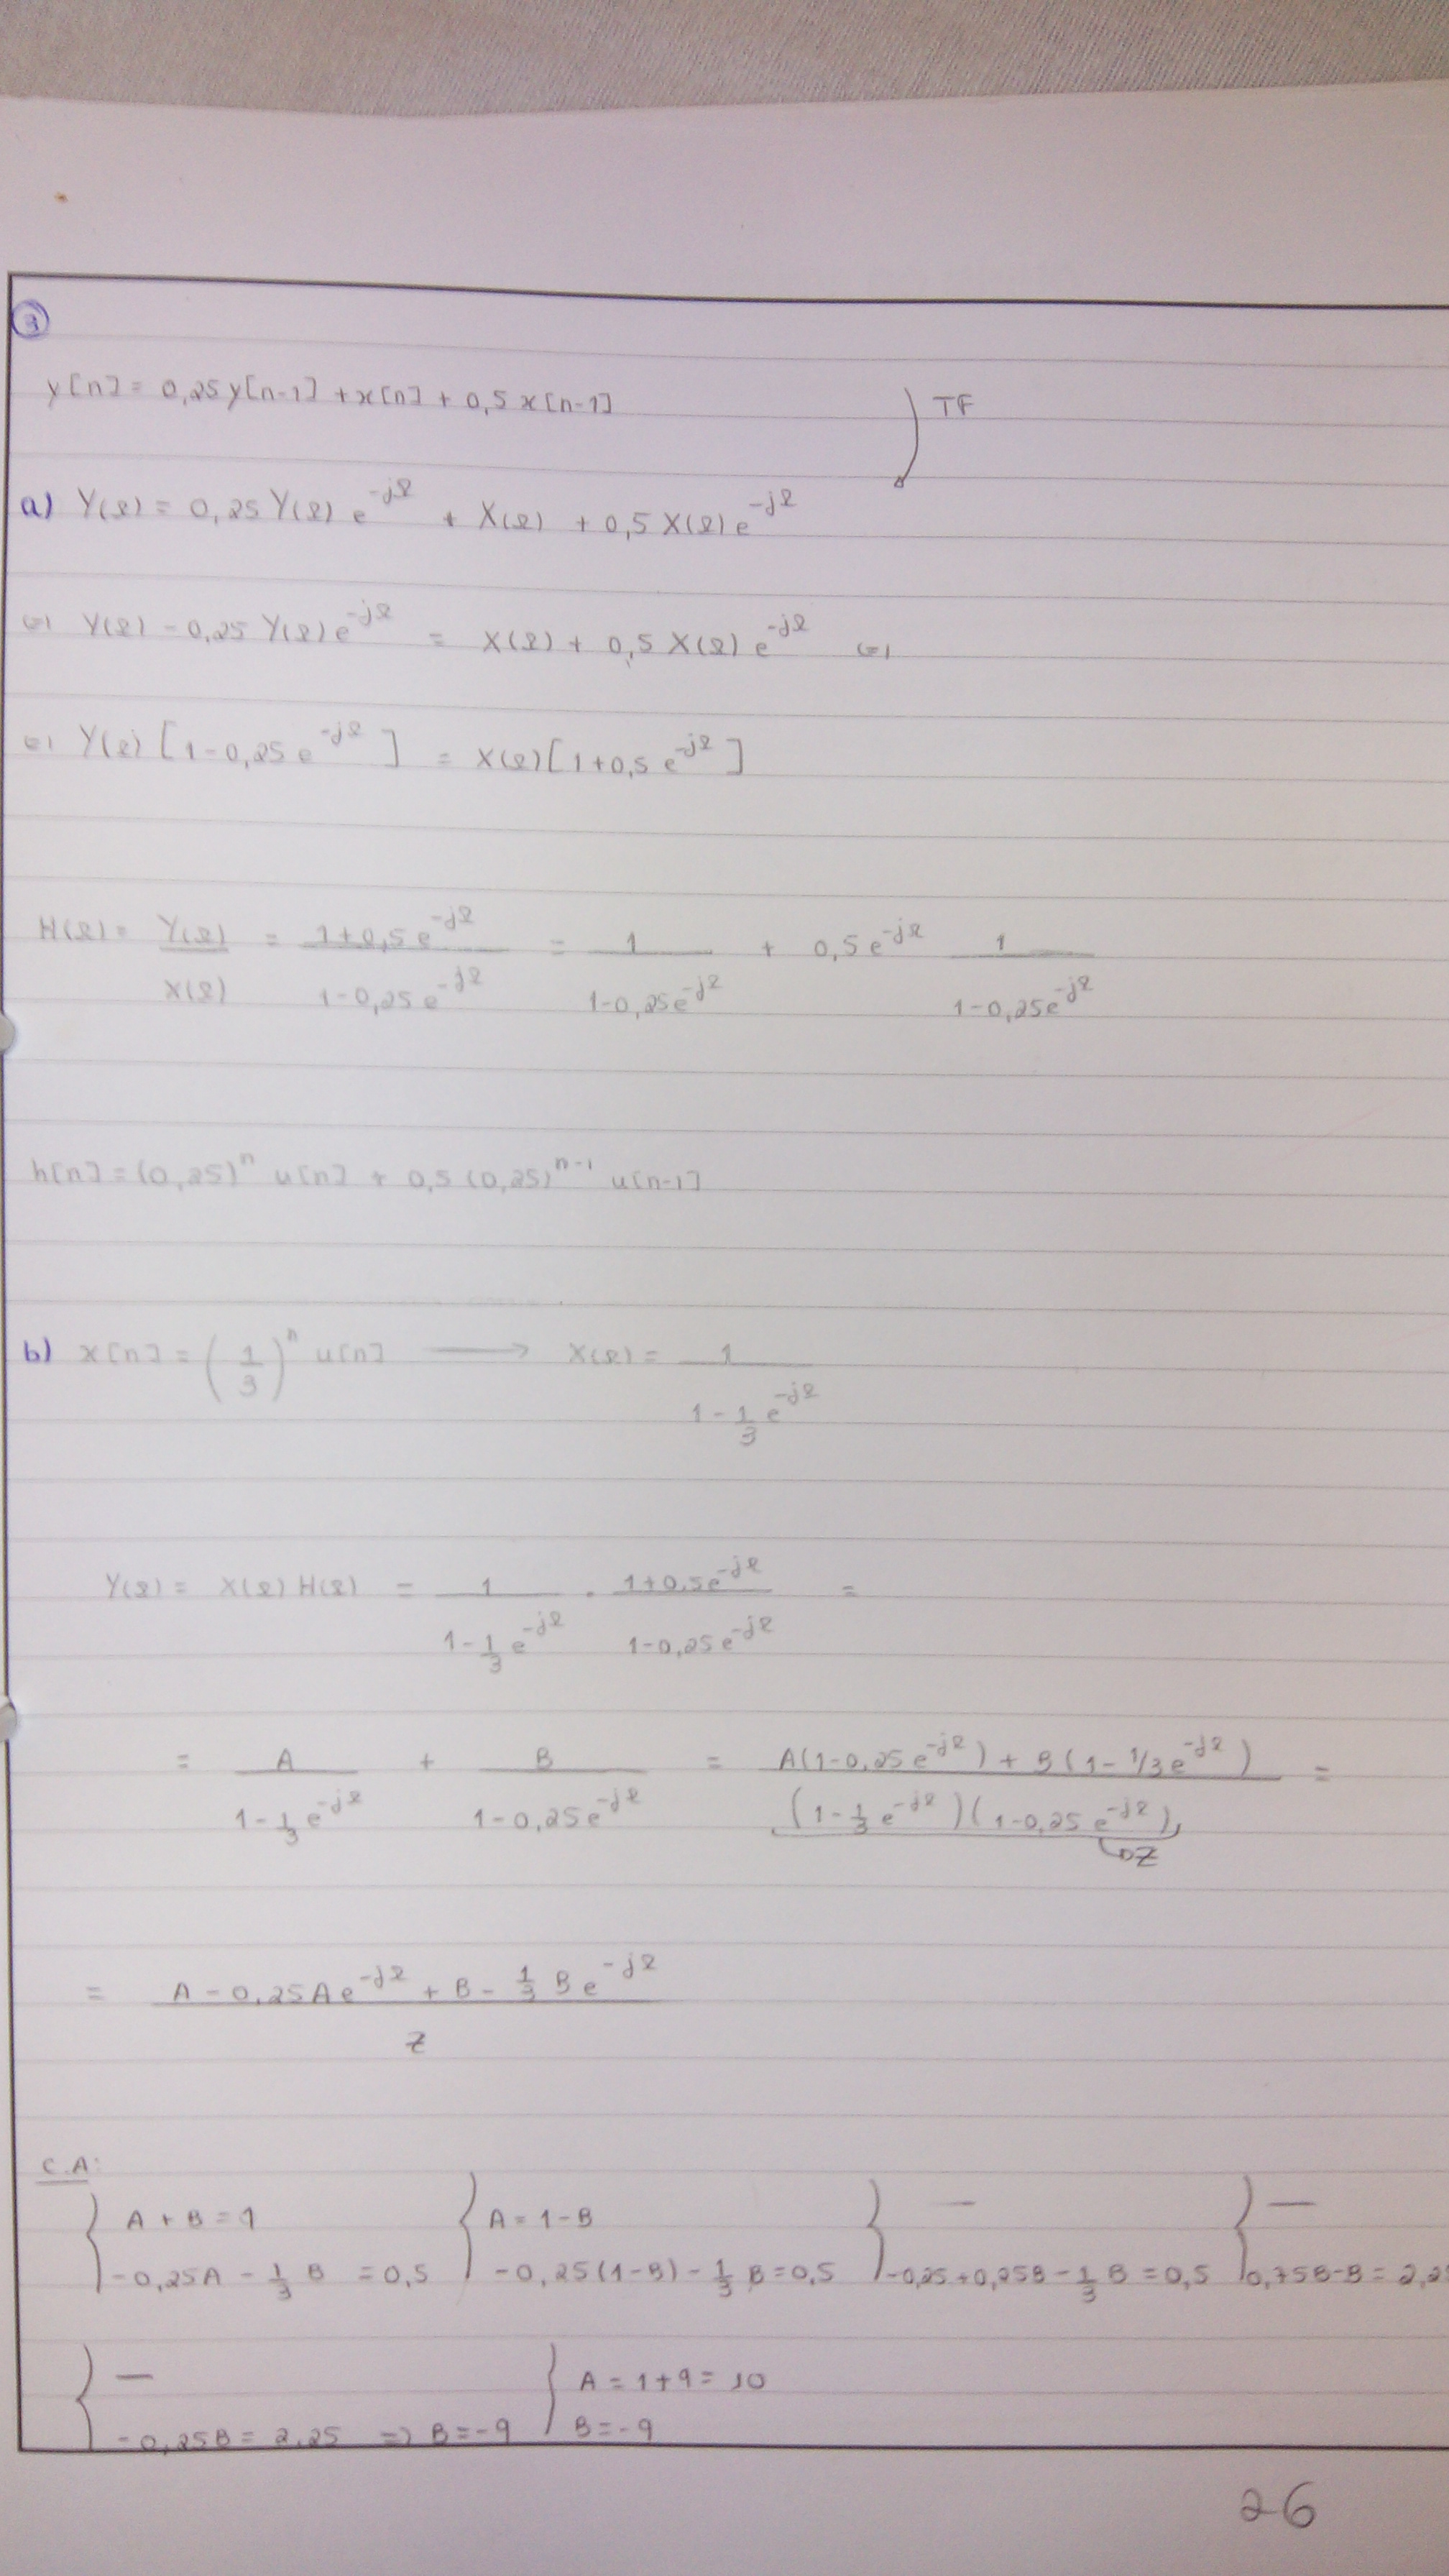 3
y[n] = 0,25y[n-1] + x[n] + 0,5x[n-1]
TF
a) Y(Ω) = 0,25Y(Ω)e^-jΩ + X(Ω) + 0,5X(Ω)e^-jΩ
(=) Y(Ω) - 0,25Y(Ω)e^-jΩ = X(Ω) + 0,5X(Ω)e^-jΩ (=)
(=) Y(Ω)[1-0,25e^-jΩ] = X(Ω)[1+0,5e^-jΩ]
H(Ω) = Y(Ω)/X(Ω) = (1+0,5e^-jΩ)/(1-0,25e^-jΩ) = 1/(1-0,25e^-jΩ) + 0,5e^-jΩ 1/(1-0,25e^-jΩ)
h[n] = (0,25)^n u[n] + 0,5(0,25)^n-1 u[n-1]
b) x[n] = (1/3)^n u[n] → X(Ω) = 1/(1-1/3e^-jΩ)
Y(Ω) = X(Ω)H(Ω) = 1/(1-1/3e^-jΩ) . (1+0,5e^-jΩ)/(1-0,25e^-jΩ) =
= A/(1-1/3e^-jΩ) + B/(1-0,25e^-jΩ) = (A(1-0,25e^-jΩ) + B(1-1/3e^-jΩ))/((1-1/3e^-jΩ)(1-0,25e^-jΩ)) =
→ Z
= (A - 0,25Ae^-jΩ + B - 1/3Be^-jΩ)/Z
C.A:
{ A + B = 1 { A = 1-B { — { —
{ -0,25A - 1/3B = 0,5 { -0,25(1-B) - 1/3B = 0,5 { -0,25+0,25B - 1/3B = 0,5 { 0,75B-B = 2,25
{ — { A = 1+9 = 10
{ -0,25B = 2,25 => B = -9 { B = -9
26